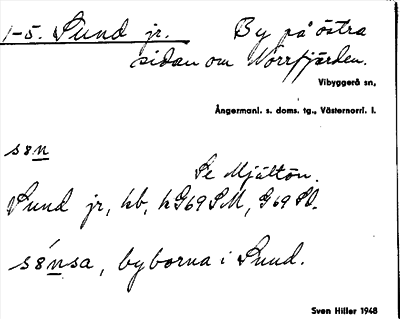 1-5. Sund jr. By på östra
sidan om Norrfjärden.
Vibyggerå sn,
Ångermanl. s. doms. tg., Västernorrl. l.
søn
Se Mjältön.
Sund jr, kb, kG69SM, G69SO.
sǿnsa, byborna i Sund.
Sven Hiller 1948